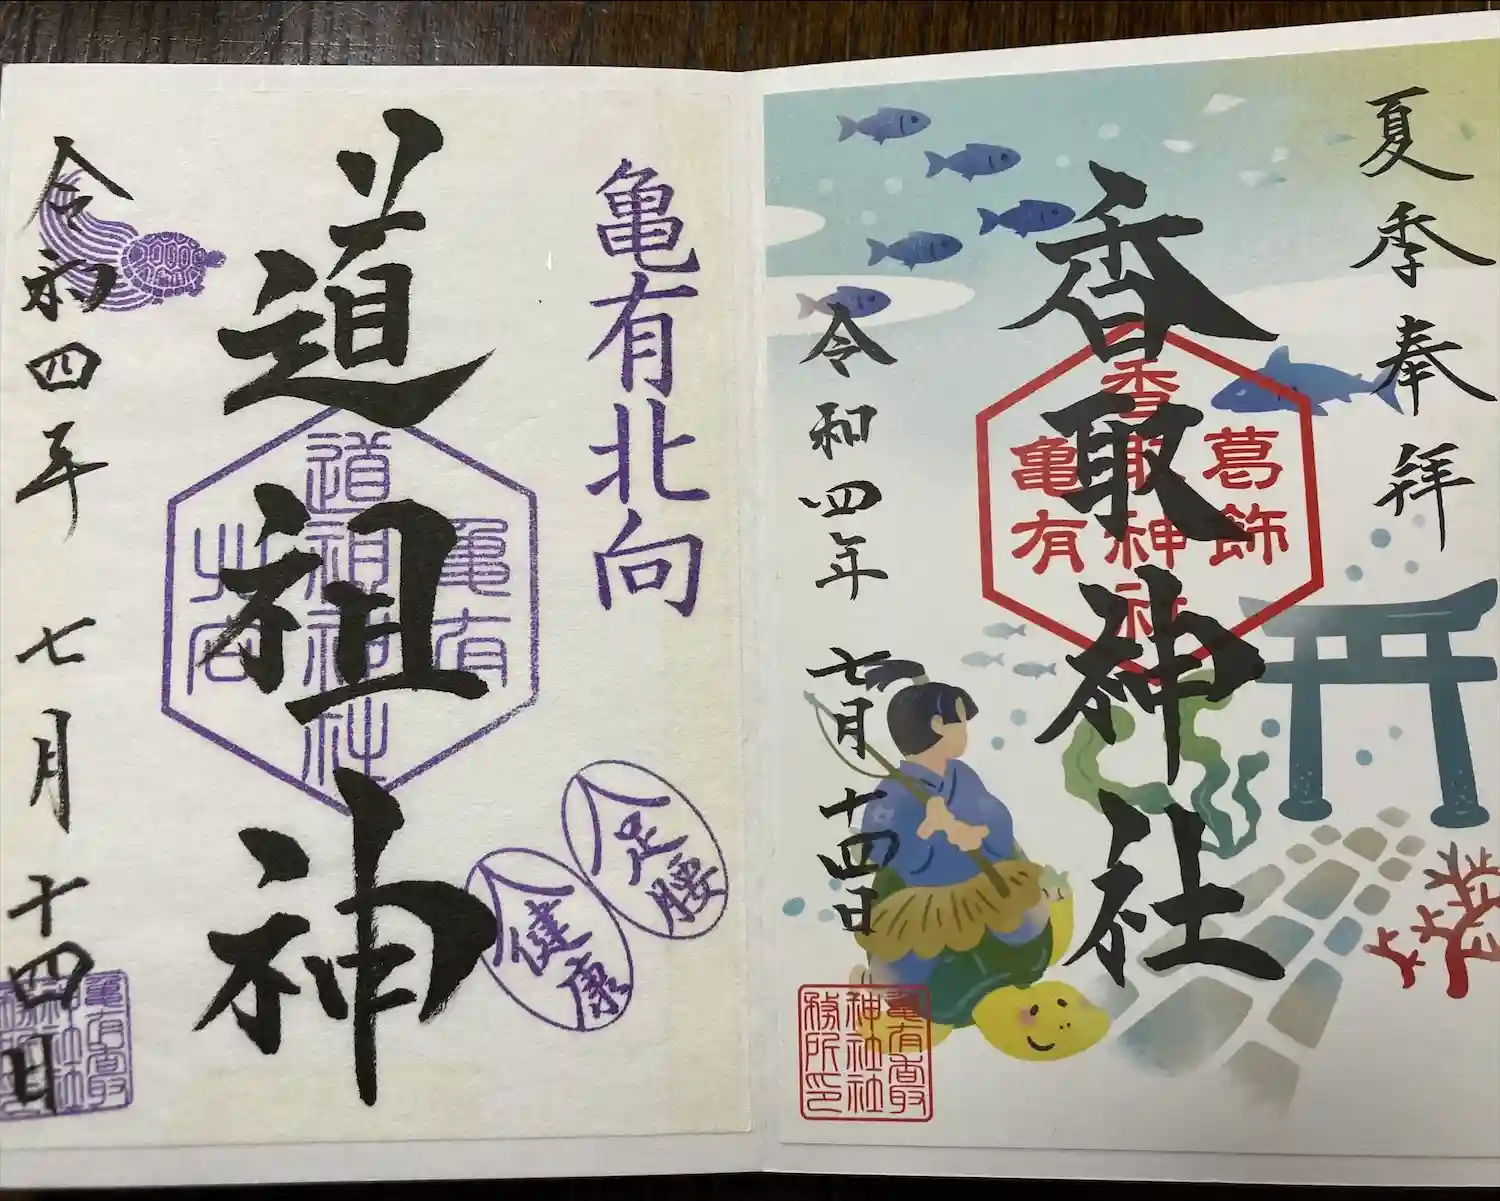 夏季奉拝
香取神社
葛飾
香取神社
亀有
令和四年 七月十四日
亀有香取
神社社
務所印
亀有北向
道祖神
亀有
道祖神神社
足腰
健康
令和四年 七月十四日
亀有香取
神社社
務所印